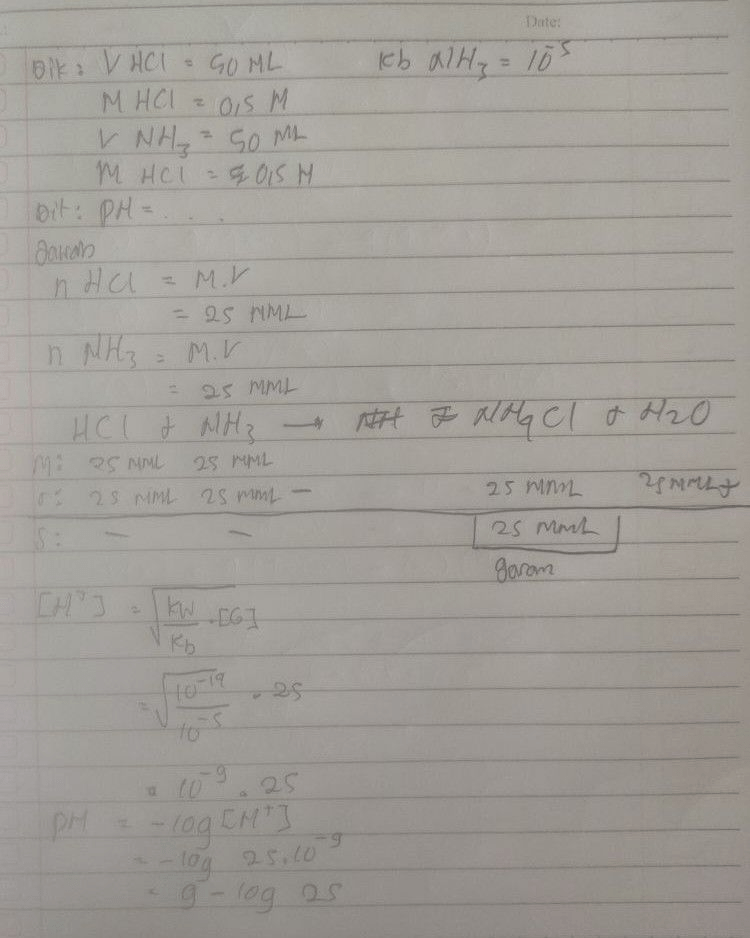 Date:
Dik : V HCl = 50 ML Kb NH3 = 10^-5
M HCl = 0,5 M
V NH3 = 50 ML
M HCl = 0,5 M
Dit : PH = . . .
Jawab
n HCl = M.V
= 25 MML
n NH3 = M.V
= 25 MML
HCl + NH3 → NH4Cl + H2O
M: 25 MML 25 MML
r: 25 MML 25 MML – 25 MML 25 MML +
S: – – 25 MML
garam
[H+] = √(Kw/Kb . [G])
= √(10^-14/10^-5) . 25
= 10^-9 . 25
PH = -log [H+]
= -log 25.10^-9
= 9 - log 25